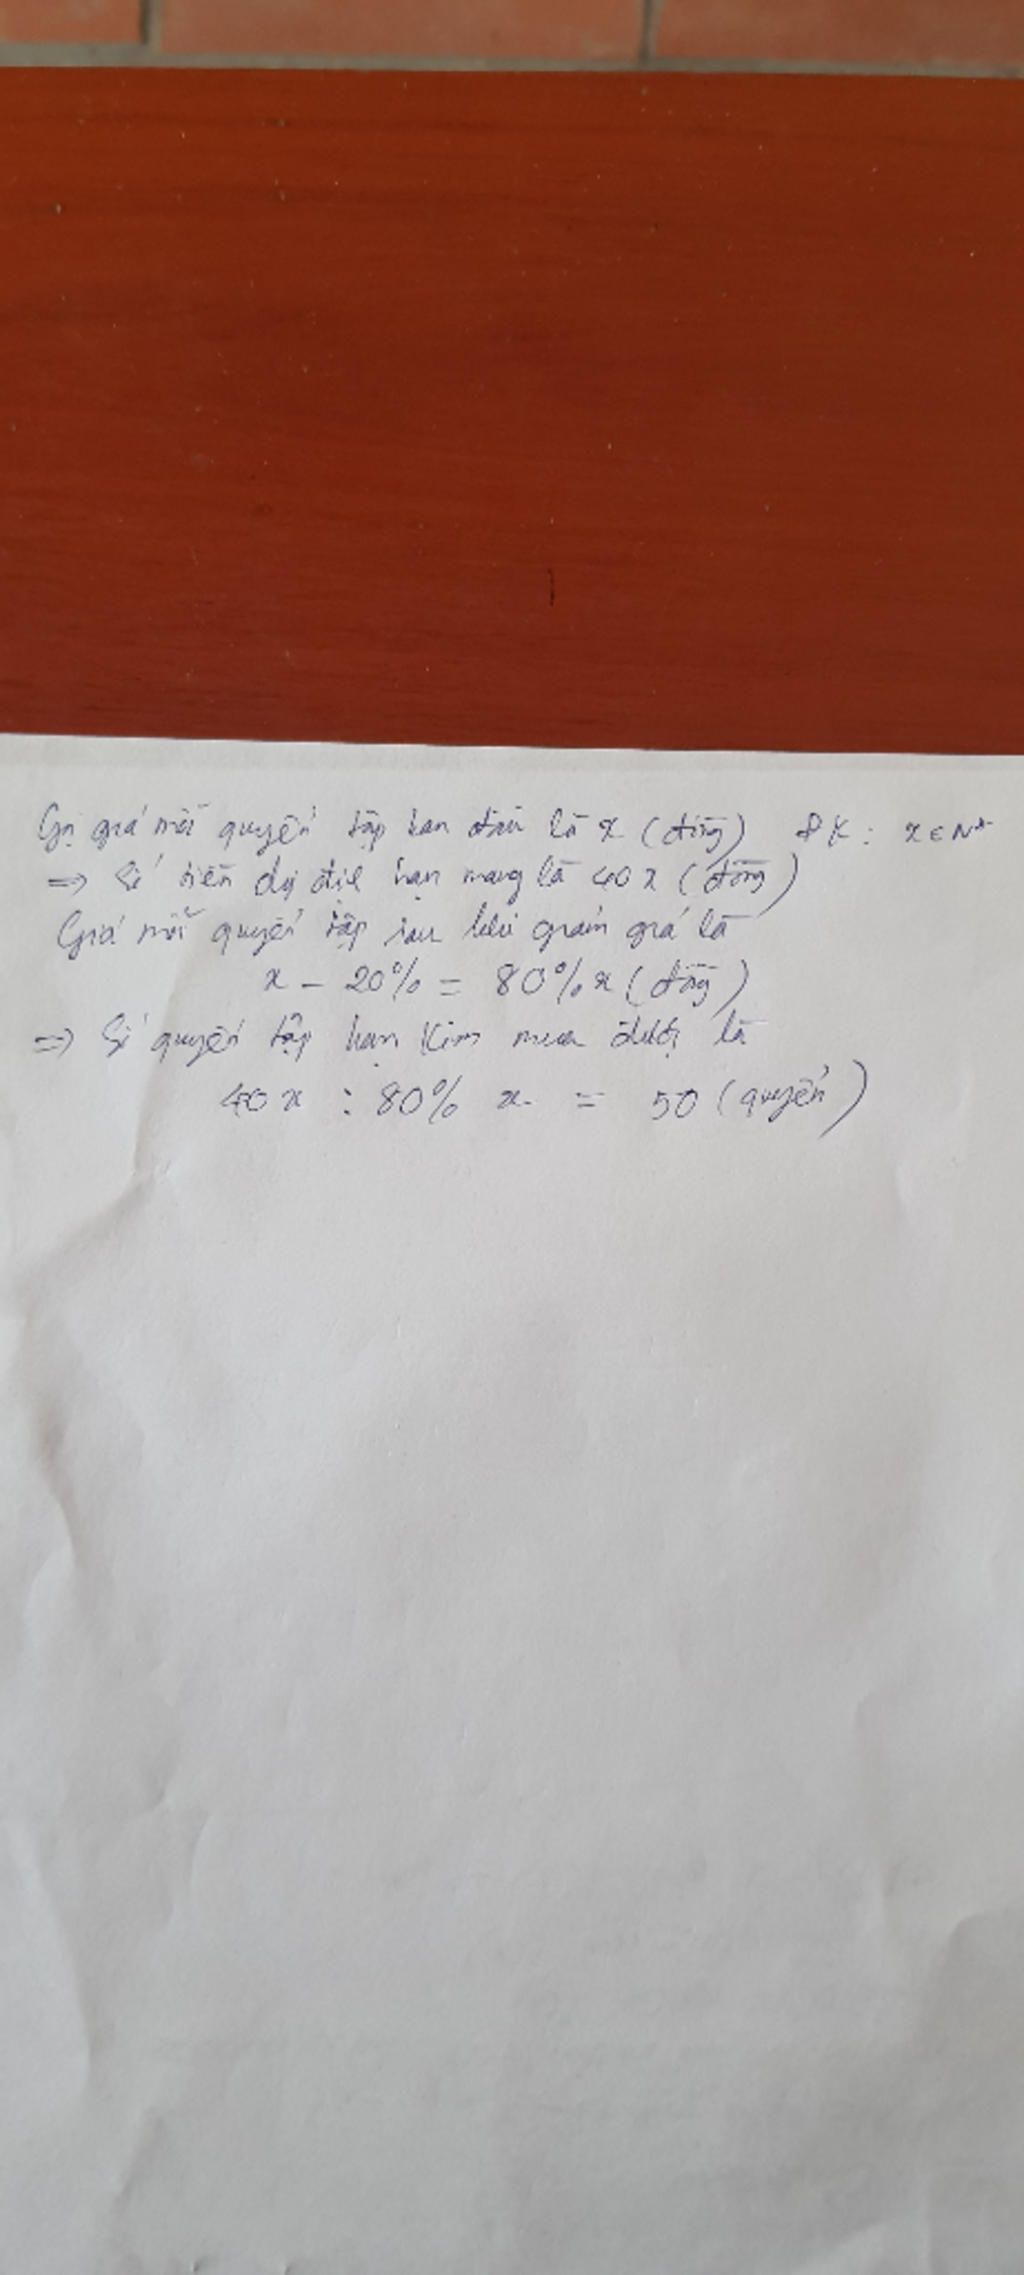 Gọi giá mỗi quyển tập ban đầu là x (đồng) ĐK : x ∈ N*
=> Số tiền dự định bạn mang là 40 x (đồng)
Giá mỗi quyển tập sau khi giảm giá là
x - 20% = 80% x (đồng)
=> Số quyển tập bạn Kim mua được là
40 x : 80% x = 50 (quyển)